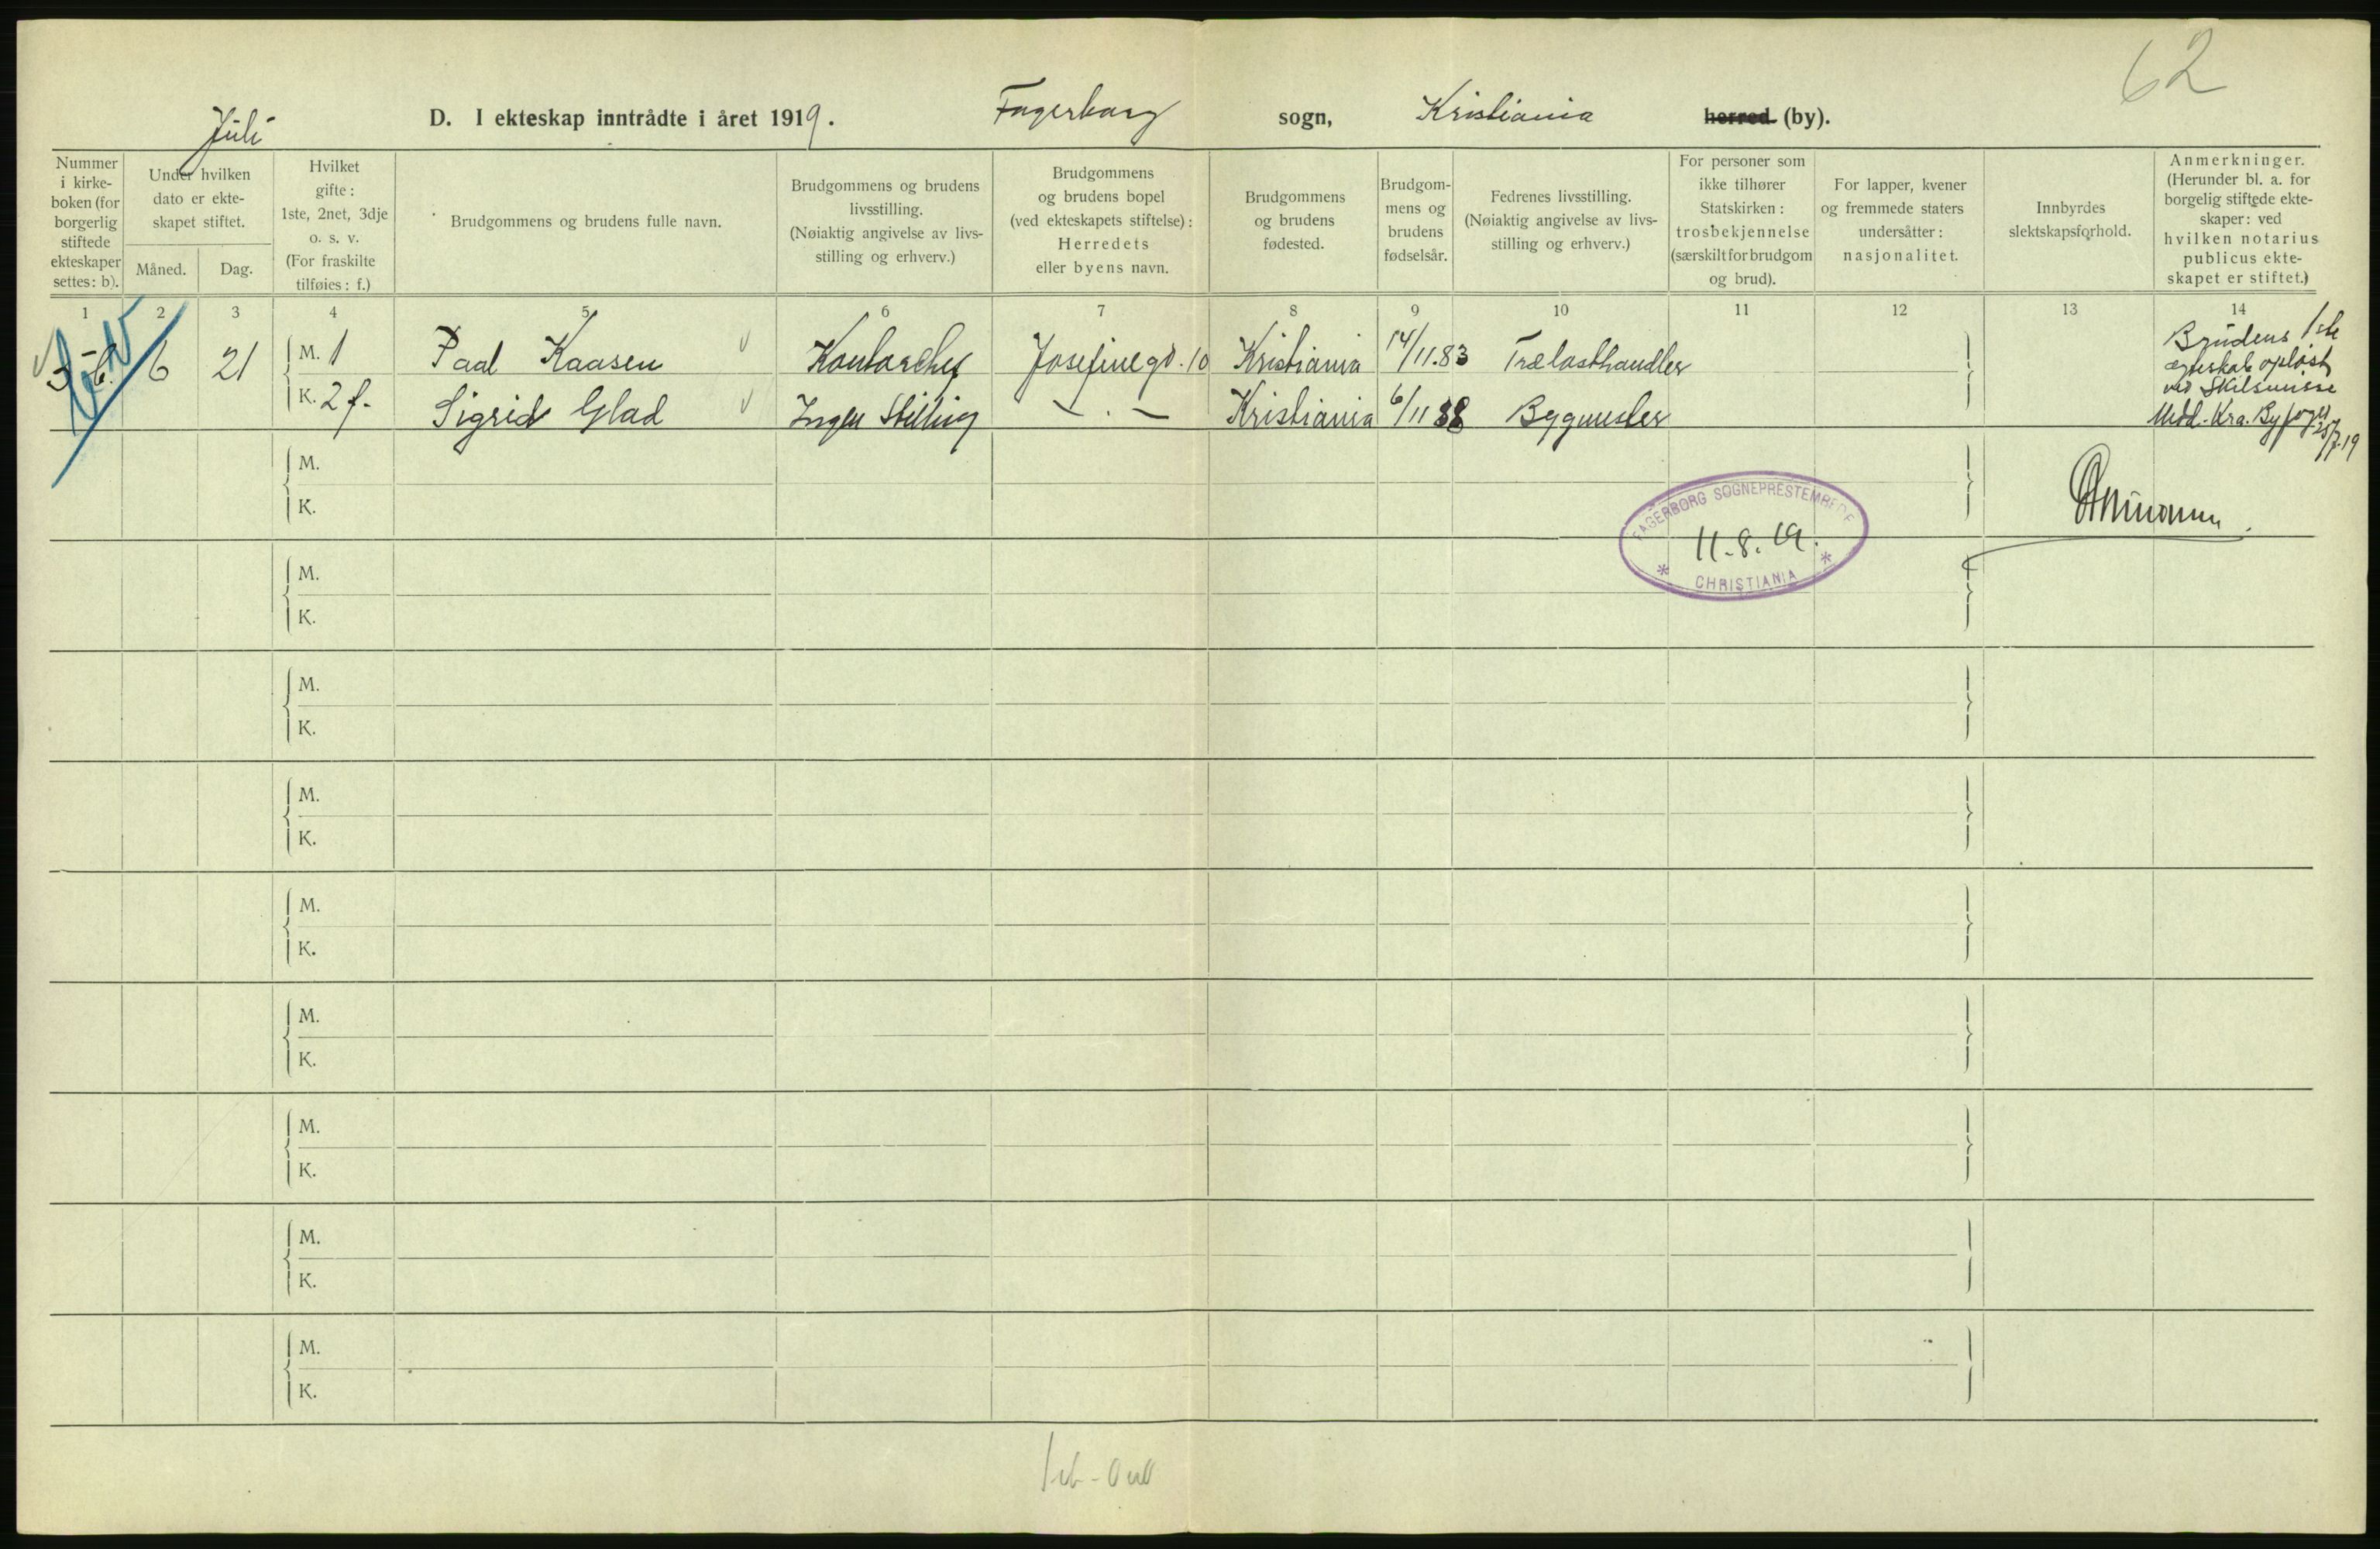 62
Juli D. I ekteskap inntrådte i året 1919. Fagerborg sogn, Kristiania herred (by).
Nummer
i kirke-
boken (for
borgerlig
stiftede
ekteskaper
settes: b).
Under hvilken
dato er ekte-
skapet stiftet.
Måned. Dag.
Hvilket
gifte:
1ste, 2net, 3dje
o. s. v.
(For fraskilte
tilføies: f.)
Brudgommens og brudens fulle navn.
Brudgommens og brudens
livsstilling.
(Nøiaktig angivelse av livs-
stilling og erhverv.)
Brudgommens
og brudens bopel
(ved ekteskapets stiftelse):
Herredets
eller byens navn.
Brudgommens
og brudens
fødested.
Brudgom-
mens og
brudens
fødselsår.
Fedrenes livsstilling.
(Nøiaktig angivelse av livs-
stilling og erhverv.)
For personer som
ikke tilhører
Statskirken:
trosbekjennelse
(særskilt for brudgom
og brud).
For lapper, kvener
og fremmede staters
undersåtter:
nasjonalitet.
Innbyrdes
slektskapsforhold.
Anmerkninger.
(Herunder bl. a. for
borgelig stiftede ekte-
skaper: ved
hvilken notarius
publicus ekte-
skapet er stiftet.)
1 2 3 4 5 6 7 8 9 10 11 12 13 14
6 21 M. 1 Paal Kaasen Kontorchef Josefinegd. 10 Kristiania 14/11.83 Trælasthandler
K. 2 f. Sigrid Glad Ingen Stilling — . — Kristiania 6/11 88 Bygmester
Brudens 1ste
ægteskab opløst
ved Skilsmisse
Medd. Kra. Byfoged
25/7.19
M.
K.
FAGERBORG SOGNEPRESTEMBEDE
11.8.19.
CHRISTIANIA
M.
K.
M.
K.
M.
K.
M.
K.
M.
K.
M.
K.
M.
K.
M.
K.